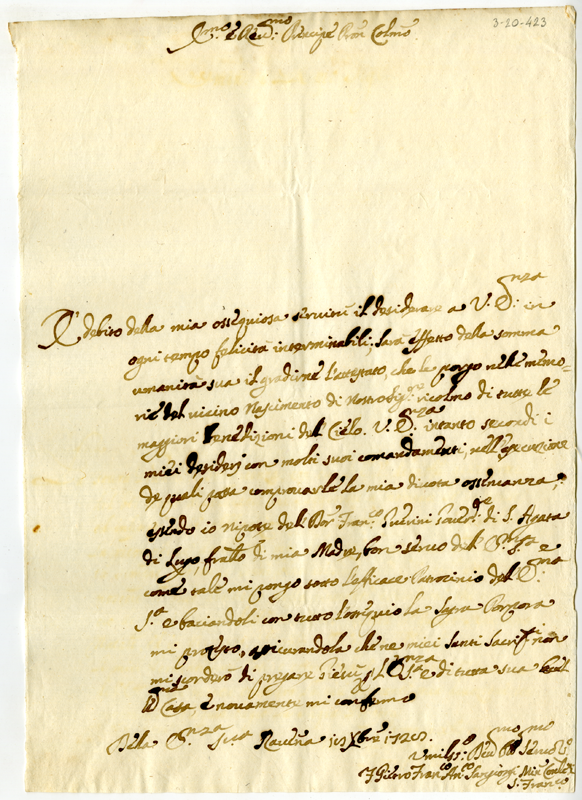 3-20-423
Em.mo e Rev.mo Principe Pron Colmo
È debito della mia ossequiosa servitù il desiderare a V. E.nza in
ogni tempo felicità interminabili; sarà effetto della somma
umanità sua il gradirne l'attestato, che le porgo nelle memo-
rie del vicino Nascimento di Nostro Sig.re ricolmo di tutte le
maggiori Benedizioni del Cielo. V. E.nza intanto secondi i
miei desiderj con molti suoi comandamenti, nell'esecuzione
de quali possa comprovarle la mia divota osservanza;
essendo io nipote del Dor Fran.co di S. Agata
di Lugo, fratello di mia Madre, bon servo dell' E.
come tale mi pongo sotto l'efficace Patrocinio dell' E.ma
S.a e baciandoli con tutto l'ossequio la Sagra Porpora
mi protesto, assicurandola che ne miei Santi Sacrifizi non
mi scorderò di pregare per L' E.nza S.a e di tutta sua
Casa, e novamente mi confermo
Della E.nza Sua Ravenna Xbre
Umiliss.o Dev.mo Servo
F. Fran.co Ant.o Min. Conv.le
S. Fran.co